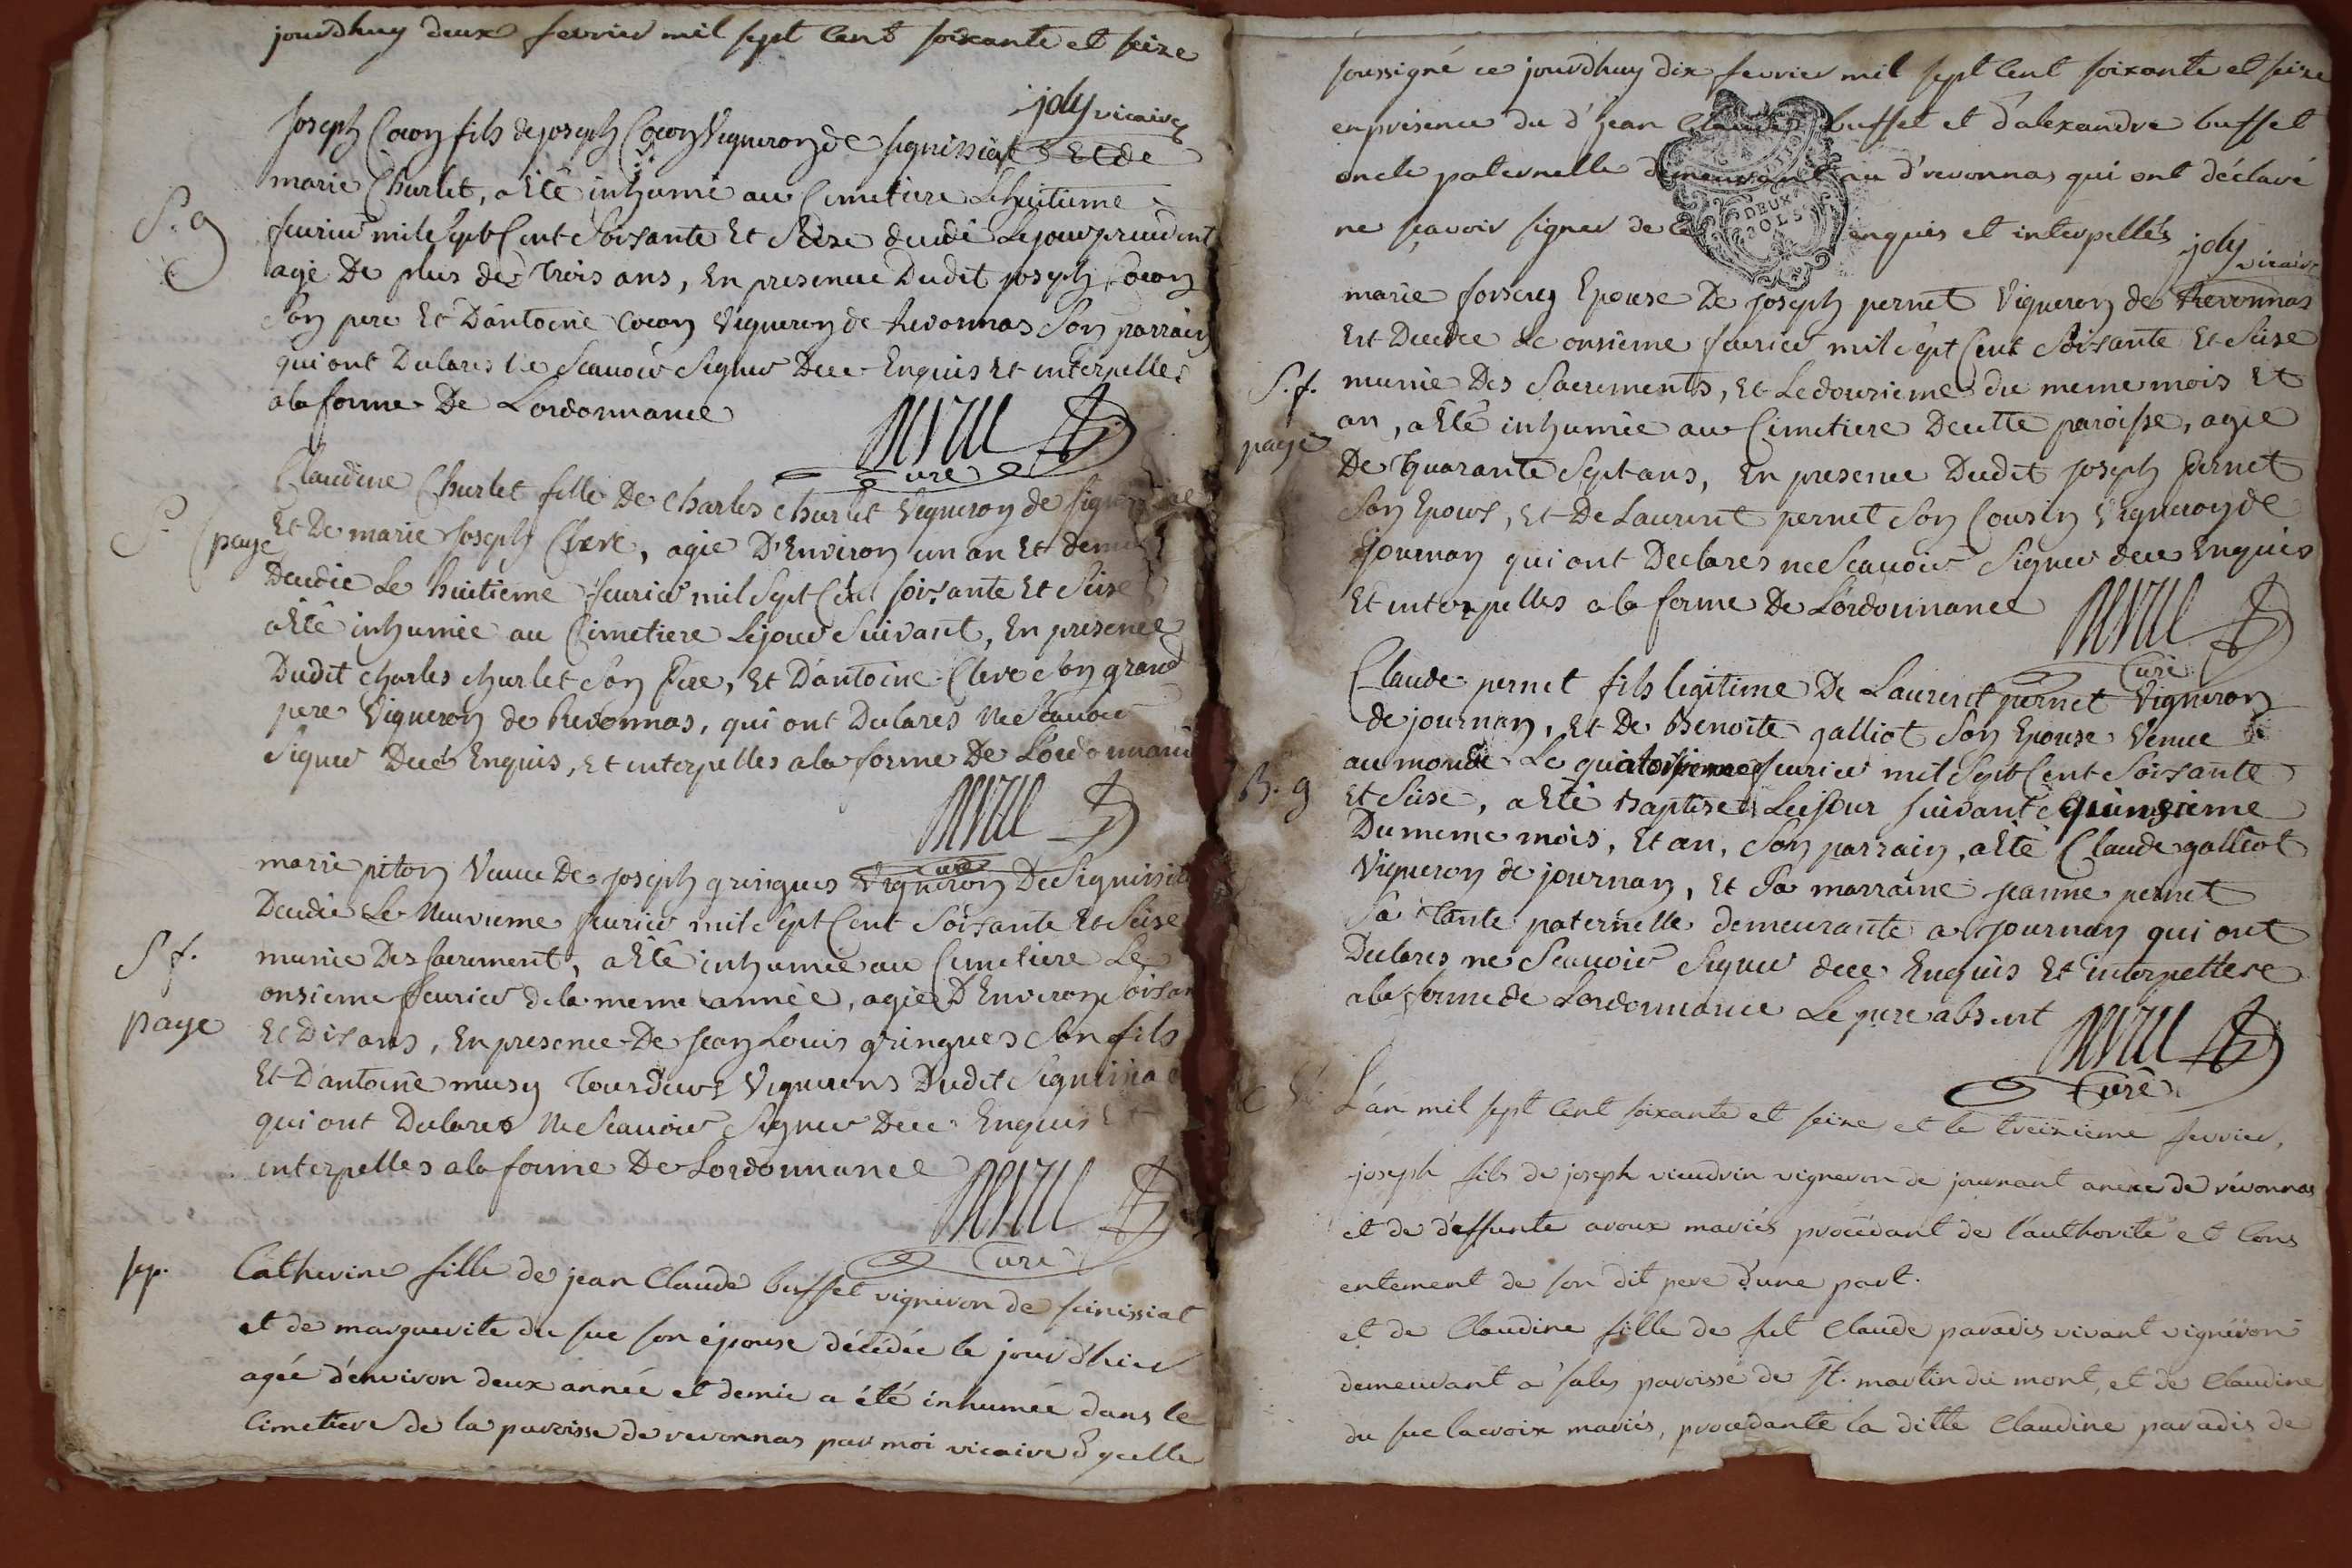 jourdhuy deux fevrier mil sept cent soixante et seize
joly vicaire
Joseph Cocon fils de joseph Cocon Vigneron de signissiat Et de
marie Churlet, a Eté inhumé au Cimetiere Le huitieme
S. g
feurier mil Sept Cent Soisante Et Seize decedé Le jour precedent
agé De plus de Trois ans, En presence Dudit joseph Cocon
Son pere Et D'antoine Cocon Vigneron de Revonnas Son parrain
qui ont Declares Ne Scauoir Signer Dece Enquis Et interpelles
a la forme De Lordonnance
Curé
Claudine Churlet fille De Charles churlet Vigneron de
S.
page
Et De marie Joseph Clere, agée D'Environ un an Et demi
Decedée Le huitième feurier mil Sept Cent soisante Et Seise
a Eté inhumée au Cimetiere Le jour Suivant, En presence
Dudit charles churlet Son Pere, Et D'antoine Clere Son grand
pere Vigneron de Revonnas, qui ont Declares Ne Scauoir
Signer Dece Enquis, Et interpelles a la forme De Lordonnance
Curé
marie piton Veuve De joseph gringues Vigneron De
Decedée Le Neuvieme feurier mil Sept Cent Soisante Et Seise
S f.
munie Des Sacrement, a Eté inhumée au Cimetiere Le
onsieme feurier de la meme année, agée D'Environ
page
Et Dix ans, En presence De Jean Louis gringues Son fils
Et D'antoine musy Tous Deux Vignerons Dudit
qui ont Declares Ne Scauoir Signer Dece Enquis Et
interpelles a la forme De Lordonnance
Curé
sep.
Catherine fille de jean Claude buffet vigneron de seinissiat
et de marguerite du suc son épouse décédée le jour d'hier
agée d'environ deux année et demie a été inhumée dans le
Cimetiere de la paroisse de revonnas par moi vicaire d'ycelle
soussigné ce jourdhuy dix fevrier mil sept cent soixante et seize
en présence du d' jean Claude buffet et d'alexandre buffet
oncle paternelle demeurant d'revonnas qui ont déclaré
ne sçavoir signer de enquis et interpellés
DEUX SOLS
joly vicaire
marie Epouse De joseph pernet Vigneron de Revonnas
Est Decedee Le onsieme feurier mil Sept Cent Soisante Et Seise
S. f.
munie Des Sacrements, Et Le dousieme du meme mois Et
page
an, a Eté inhumée au Cimetiere De cette paroisse, agée
De quarante Sept ans, En presence Dudit joseph pernet
Son Epoux, Et De Laurent pernet Son Cousin Vigneron de
journan qui ont Declares ne Scauoir Signer dece Enquis
Et interpelles a la forme De Lordonnance
Curé
Claude pernet fils legitime De Laurent pernet Vigneron
de journan, Et De Benoite galliot Son Epouse Venue
au monde Le quatorsieme feurier mil Sept Cent Soisante
B. g
Et Seise, a Eté Baptise Le jour suivant quinsieme
Du meme mois, Et an, Son parrain, a Eté Claude galliot
Vigneron de journan, Et Sa marraine jeanne pernet
Sa Tante paternelle demeurante a journan qui ont
Declares ne Scauoir Signer dece Enquis Et interpelles
a la forme de Lordonnance Le pere absent
Curé
L'an mil sept cent soixante et seize et le treizieme fevrier,
joseph fils de joseph vieudrin vigneron de journant anexe de révonnas
et de d'effunte avoux mariés procédant de l'authorité et Cons
entement de son dit pere d'une part.
et de Claudine fille de fut Claude paradis vivant vignéron
demeurant à sales paroisse de St. martin du mont, et de Claudine
du suc lacroix mariés, procedante la ditte Claudine paradis de